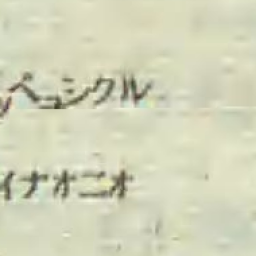 ペコシクル
イナオニオ